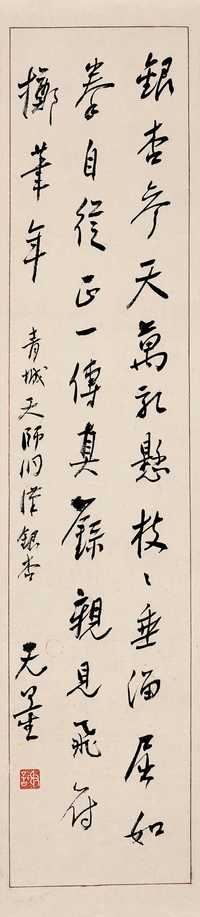 銀杏參天萬乳懸枝〻垂溜屈如
拳自從正一傳真籙親見飛符
擲筆年
青城天師洞漢銀杏
无量